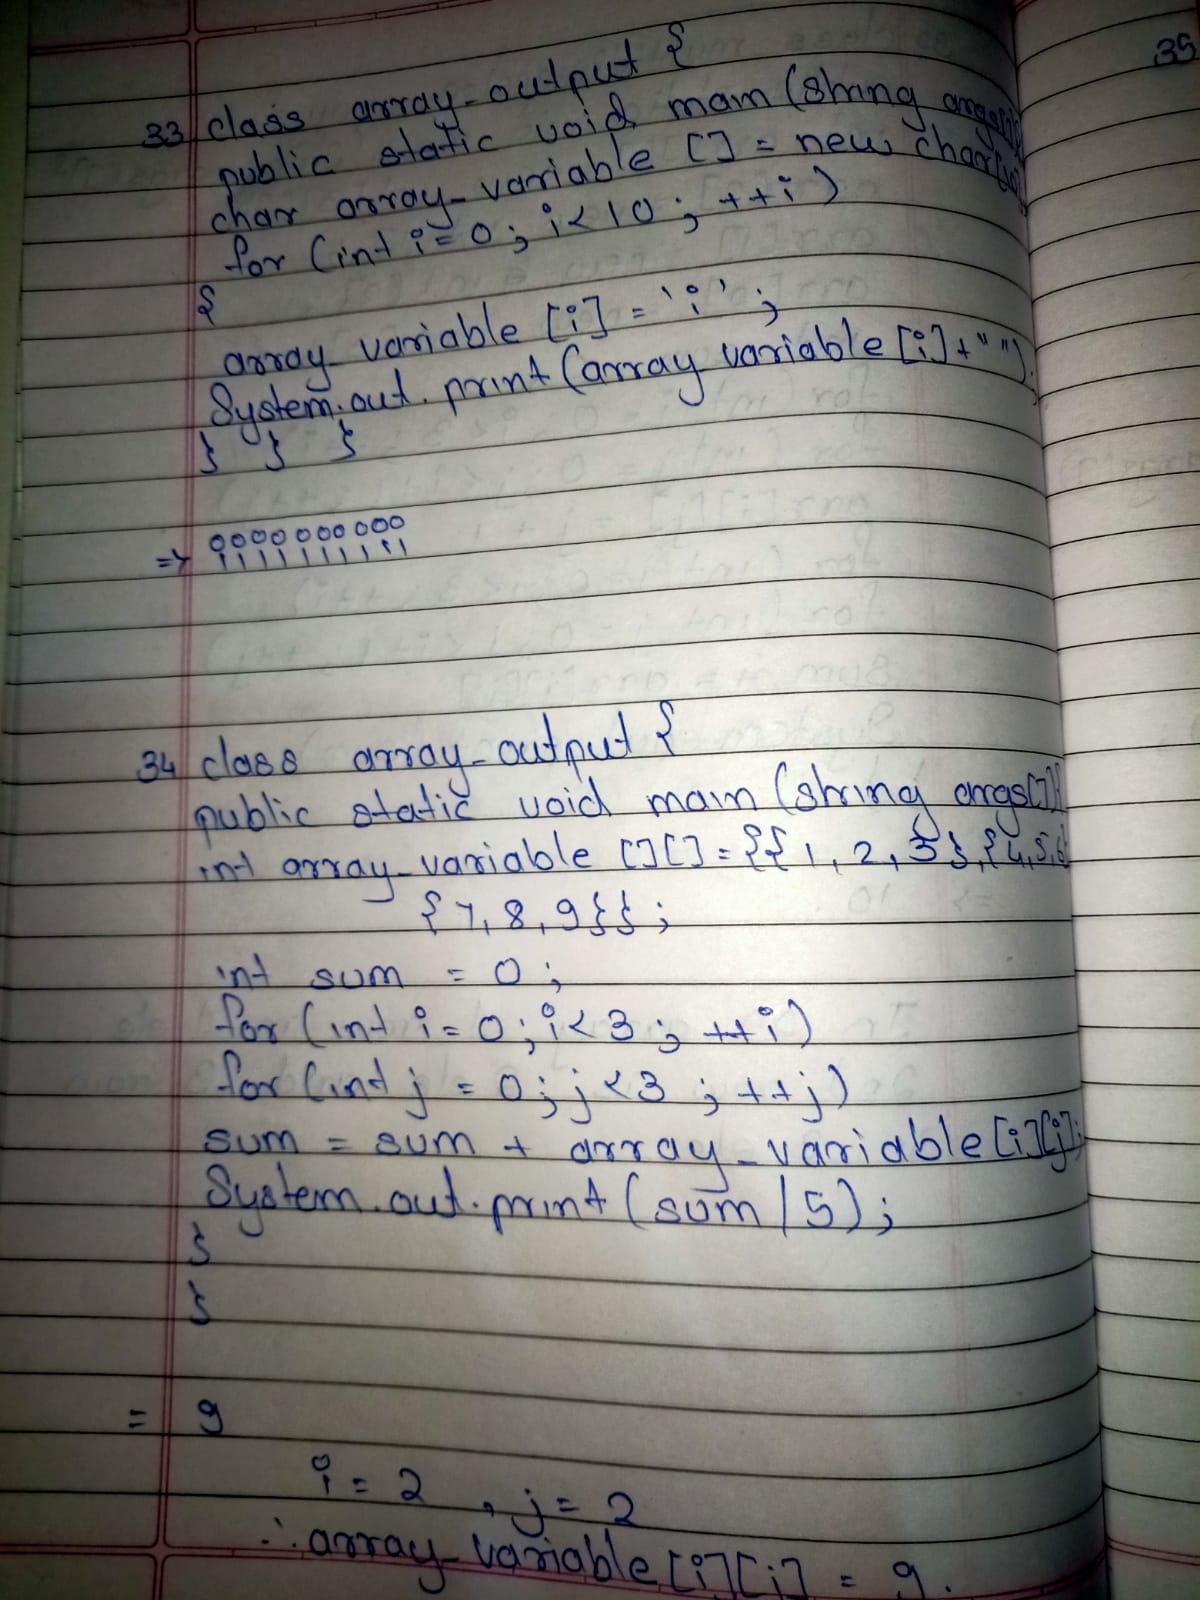 33 class array-output {
public static void main (string args[]){
char array-variable [] = new char[10]
for (int i=0; i<10; ++i)
{
array-variable [i] = 'i';
System.out.print (array-variable [i]+" ");
} } }
=> i i i i i i i i i i
34 class array-output {
public static void main (string args[]){
int array-variable [][] = {{1, 2, 3}, {4,5,6}
{7, 8, 9}};
int sum = 0;
for (int i=0; i<3; ++i)
for (int j = 0; j<3; ++j)
sum = sum + array-variable[i][j];
System.out.print (sum/5);
}
}
= 9
i = 2, j = 2
∴ array-variable [i][j] = 9.
35